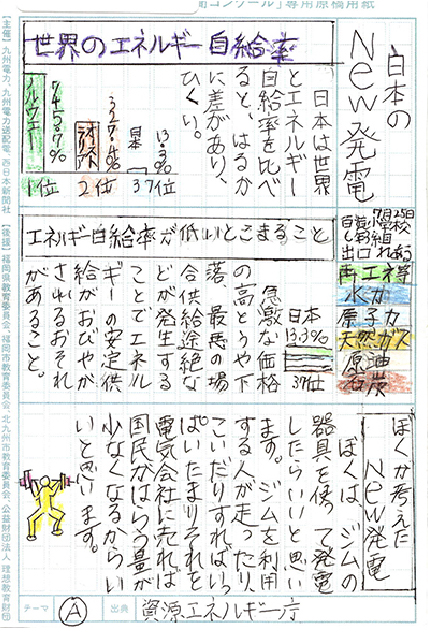 コンクール」専用原稿用紙
日本の
New発電
世界のエネルギー自給率
日本は世界
とエネルギー
自給率を比べ
ると、はるか
に差があり、
ひくい。
ノルウェー
745.7%
1位
オーストラリア
327.4%
2位
日本
13.3%
37位
エネルギー自給率が低いとこまること
日本
13.3%
37位
急激な価格
の高とうや下
落、最悪の場
合供給途絶な
どが発生する
ことでエネル
ギーの安定供
給がおびやか
されるおそれ
があること。
再エネ等
水力
原子力
天然ガス
原油
石炭
ぼくが考えた
New発電
ぼくは、ジムの
器具を使って発電
したらいいと思い
ます。ジムを利用
する人が走ったり、
こいだりすればいっ
ぱいたまりそれを
電気会社に売れば
国民がはらう量が
少なくなるからい
いと思います。
テーマ
A
出典
資源エネルギー庁
【主催】九州電力、九州電力送配電、西日本新聞社
【後援】福岡県教育委員会、福岡市教育委員会、北九州市教育委員会、公益財団法人 理想教育財団